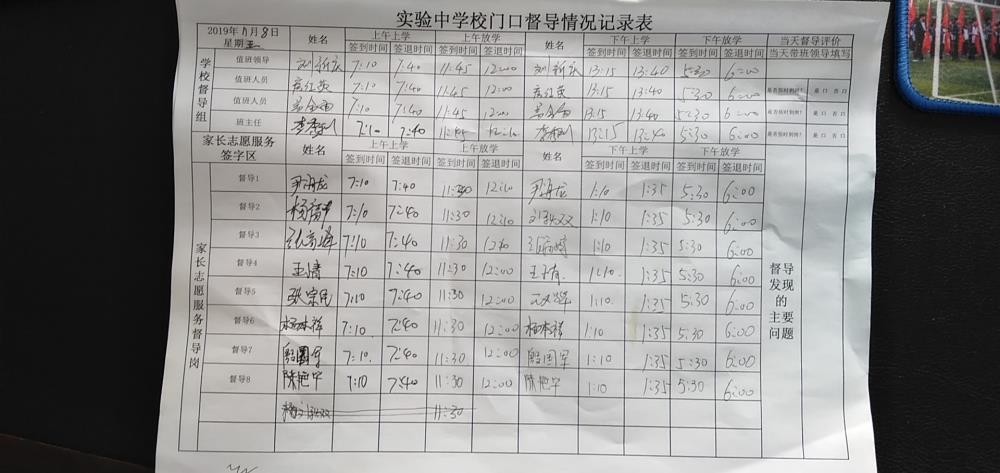 实验中学校门口督导情况记录表
2019年11月8日 星期五 姓名 上午上学 上午放学 姓名 下午上学 下午放学 当天督导评价
签到时间 签退时间 签到时间 签退时间 签到时间 签退时间 签到时间 签退时间 当天带班领导填写
学校督导组
值班领导 7:10 7:40 11:45 12:00 13:15 13:40 5:30 6:00
值班人员 7:10 7:40 11:45 12:00 13:15 13:40 5:30 6:00 是否按时到岗? 是口 否口
值班人员 7:10 7:40 11:45 12:00 13:15 13:40 5:30 6:00 是否按时到岗? 是口 否口
班主任 7:10 7:40 11:45 13:15 13:40 5:30 6:00 是否按时到岗? 是口 否口
家长志愿服务签字区 姓名 上午上学 上午放学 姓名 下午上学 下午放学
签到时间 签退时间 签到时间 签退时间 签到时间 签退时间 签到时间 签退时间
家长志愿服务督导岗
督导1 7:10 7:40 11:30 12:10 1:10 1:35 5:30 6:00
督导2 7:10 7:40 11:30 12:10 1:10 1:35 5:30 6:00
督导3 7:10 7:40 11:30 1:10 1:35 5:30 6:00
督导4 王倩 7:10 7:40 11:30 12:00 1:10 1:35 5:30 6:00
督导5 张宗民 7:10 7:40 11:30 12:00 1:10 1:35 5:30 6:00
督导6 杨本祥 7:10 7:40 11:30 12:00 杨本祥 1:10 1:35 5:30 6:00
督导7 殷国军 7:10 7:40 11:30 12:00 殷国军 1:10 1:35 5:30 6:00
督导8 陈艳平 7:10 7:40 11:30 12:00 陈艳平 1:10 1:35 5:30 6:00
11:30
督导发现的主要问题